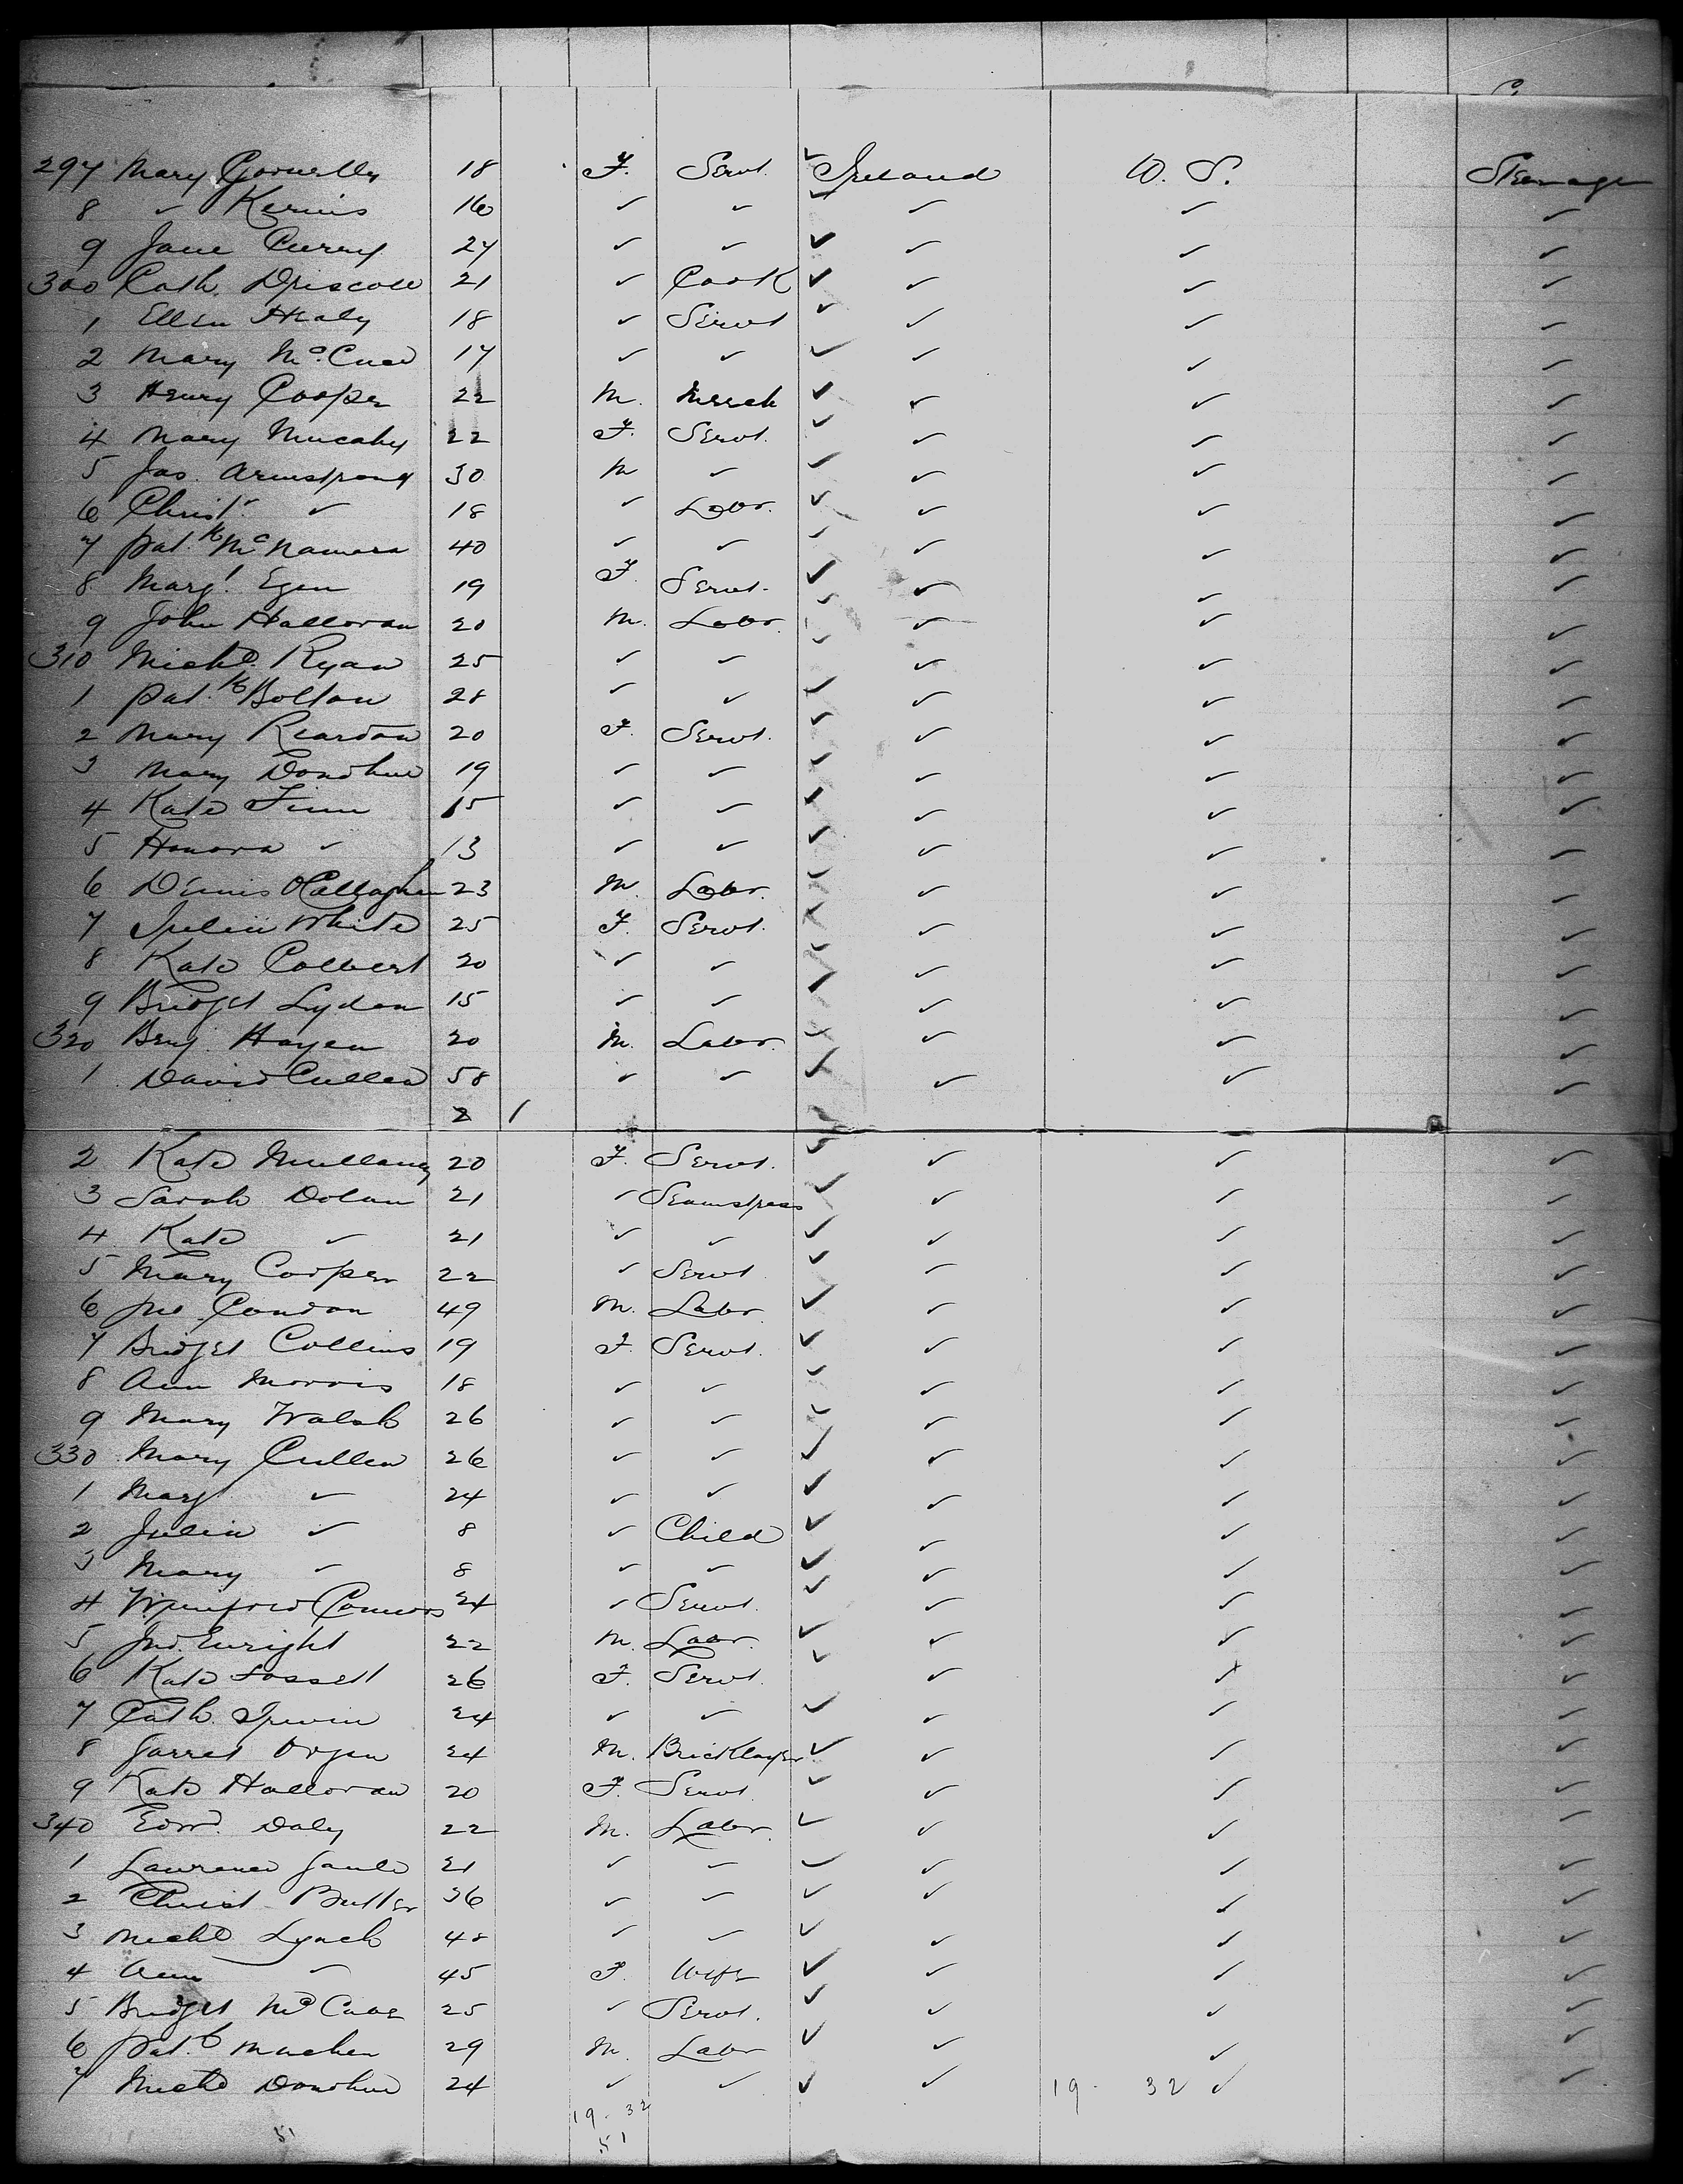 297 Mary 18 F. Servt. ✓ Ireland U. S. Steerage
8 " Kerins 16 ✓ ✓ ✓ ✓ ✓ ✓
9 Jane Curry 27 ✓ ✓ ✓ ✓ ✓ ✓
300 Cath. Driscoll 21 ✓ Cook ✓ ✓ ✓ ✓
1 Ellen Healy 18 ✓ Servt ✓ ✓ ✓ ✓
2 Mary 17 ✓ ✓ ✓ ✓ ✓ ✓
3 Henry Cooper 22 M. Merch ✓ ✓ ✓ ✓
4 Mary Mucahy 22 F. Servt. ✓ ✓ ✓ ✓
5 Jas. Armstrong 30 M ✓ ✓ ✓ ✓ ✓
6 Christr. ✓ 18 ✓ Labr. ✓ ✓ ✓ ✓
7 Patk McNamara 40 ✓ ✓ ✓ ✓ ✓ ✓
8 Margt. Egan 19 F. Servt. ✓ ✓ ✓ ✓
9 John Halloran 20 M. Labr. ✓ ✓ ✓ ✓
310 Michl. Ryan 25 ✓ ✓ ✓ ✓ ✓ ✓
1 Patk Bolton 28 ✓ ✓ ✓ ✓ ✓ ✓
2 Mary Reardon 20 F. Servt. ✓ ✓ ✓ ✓
3 Mary Donohue 19 ✓ ✓ ✓ ✓ ✓ ✓
4 Kate Finn 15 ✓ ✓ ✓ ✓ ✓ ✓
5 Honora ✓ 13 ✓ ✓ ✓ ✓ ✓ ✓
6 Dennis O'Callaghan 23 M. Labr. ✓ ✓ ✓ ✓
7 Julia White 25 F. Servt. ✓ ✓ ✓ ✓
8 Kate Colbert 20 ✓ ✓ ✓ ✓ ✓ ✓
9 Bridget Lydon 15 ✓ ✓ ✓ ✓ ✓ ✓
320 Benj. Hayen 20 M. Labr. ✓ ✓ ✓ ✓
1 David Cullen 58 ✓ ✓ ✓ ✓ ✓ ✓
2 1
2 Kate Mullany 20 F. Servt. ✓ ✓ ✓ ✓
3 Sarah Dolan 21 ✓ Seamstress ✓ ✓ ✓ ✓
4 Kate ✓ 21 ✓ ✓ ✓ ✓ ✓ ✓
5 Mary Cooper 22 ✓ Servt ✓ ✓ ✓ ✓
6 Jno. Condon 49 M. Labr. ✓ ✓ ✓ ✓
7 Bridget Collins 19 F. Servt. ✓ ✓ ✓ ✓
8 Ann Morris 18 ✓ ✓ ✓ ✓ ✓ ✓
9 Mary Walsh 26 ✓ ✓ ✓ ✓ ✓ ✓
330 Mary Cullen 26 ✓ ✓ ✓ ✓ ✓ ✓
1 Margt ✓ 24 ✓ ✓ ✓ ✓ ✓ ✓
2 Julia ✓ 8 ✓ Child ✓ ✓ ✓ ✓
3 Mary ✓ 8 ✓ ✓ ✓ ✓ ✓ ✓
4 Winifred Connors 24 ✓ Servt. ✓ ✓ ✓ ✓
5 Jno. Enright 22 M. Labr. ✓ ✓ ✓ ✓
6 Kate Fossett 26 F. Servt. ✓ ✓ ✓ ✓
7 Cath. Irwin 24 ✓ ✓ ✓ ✓ ✓ ✓
8 Garret Organ 24 M. Bricklayer ✓ ✓ ✓ ✓
9 Kate Halloran 20 F. Servt. ✓ ✓ ✓ ✓
340 Edwd. Daly 22 M. Labr. ✓ ✓ ✓ ✓
1 Lawrence Gaule 21 ✓ ✓ ✓ ✓ ✓ ✓
2 Christ Butler 36 ✓ ✓ ✓ ✓ ✓ ✓
3 Michl Lynch 48 ✓ ✓ ✓ ✓ ✓ ✓
4 Ann ✓ 45 F. Wife ✓ ✓ ✓ ✓
5 Bridget McCabe 25 ✓ Servt. ✓ ✓ ✓ ✓
6 Patk 29 M. Labr ✓ ✓ ✓ ✓
7 Michl Donohue 24 ✓ ✓ ✓ ✓ 19 - 32 ✓ ✓
19 - 32
51 51